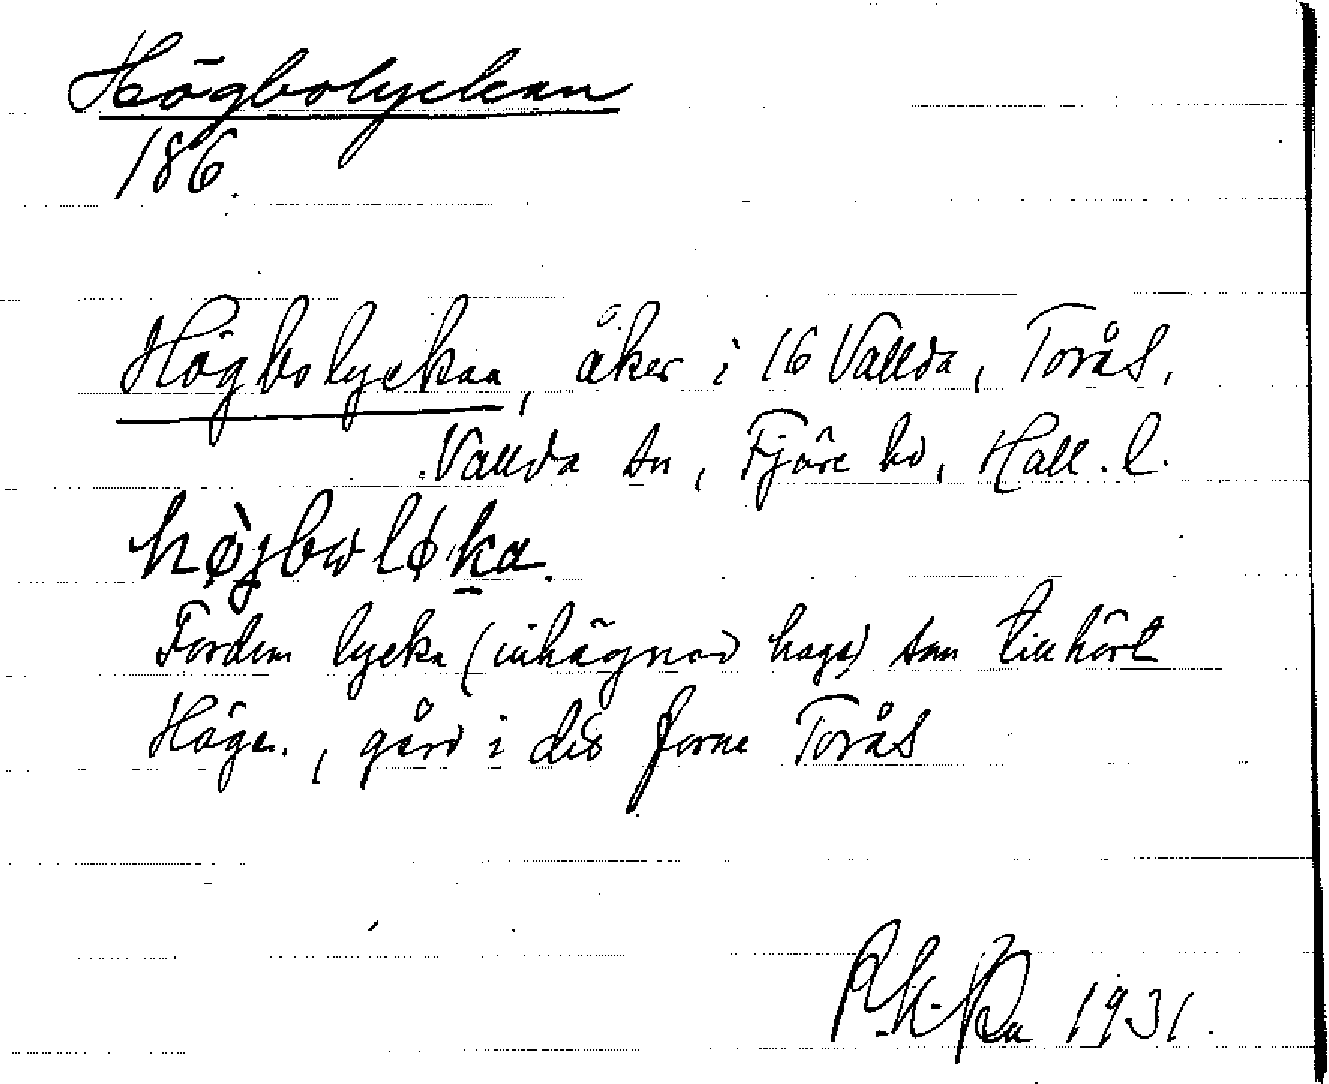 Högbolyckan
186.
Högbolyckan, åker i 16 Vallda, Torås,
Vallda sn, Fjäre hd, Hall. l.
Fordom lycka (inhägnad hage) som tillhört
Högen, gård i det forne Torås
1931.